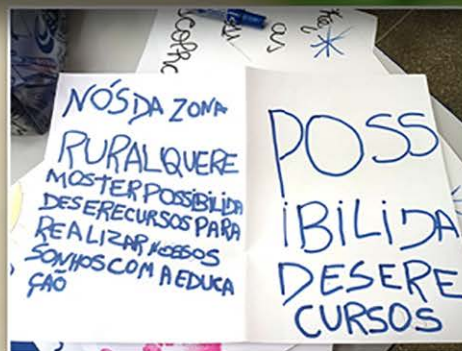 NÓS DA ZONA
RURAL QUERE
MOS TER POSSIBILIDA
DES E RECURSOS PARA
REALIZAR NOSSOS
SONHOS COM A EDUCA
ÇAÕ
POSS
IBILIDA
DES E RE
CURSOS
as